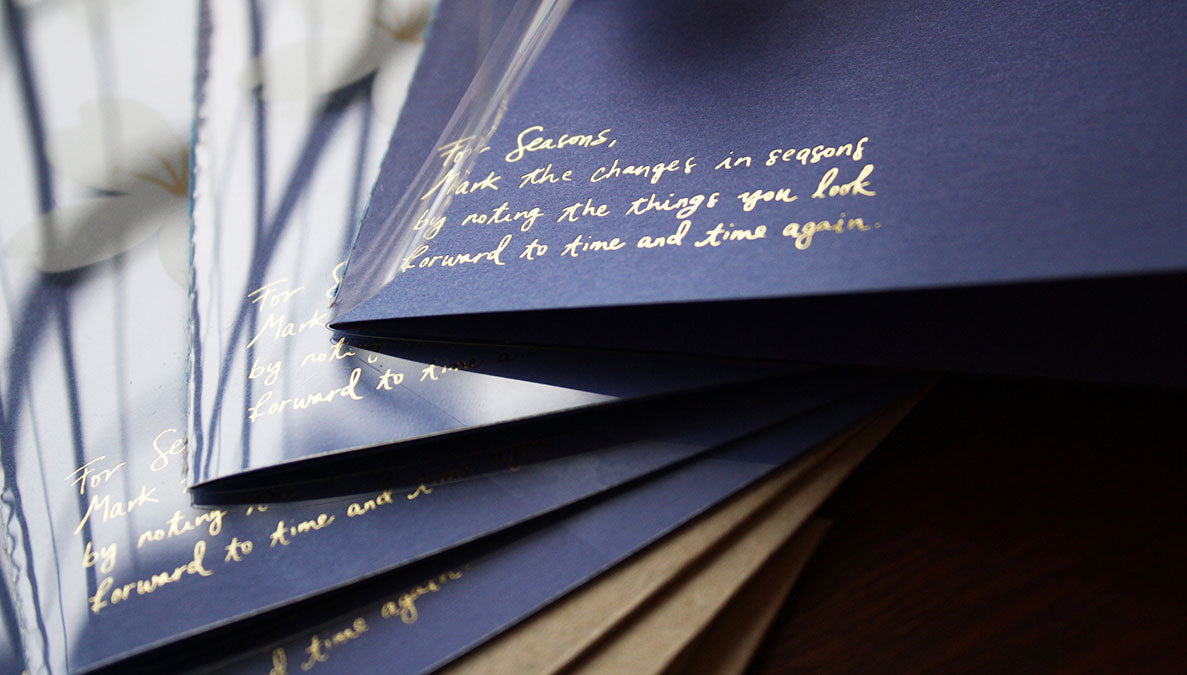 For Seasons,
Mark the changes in seasons
by noting the things you look
forward to time and time again.
For S
Mark
by noti
forward to time an
For Se
Mark
by noting
forward to time and time
d time again.